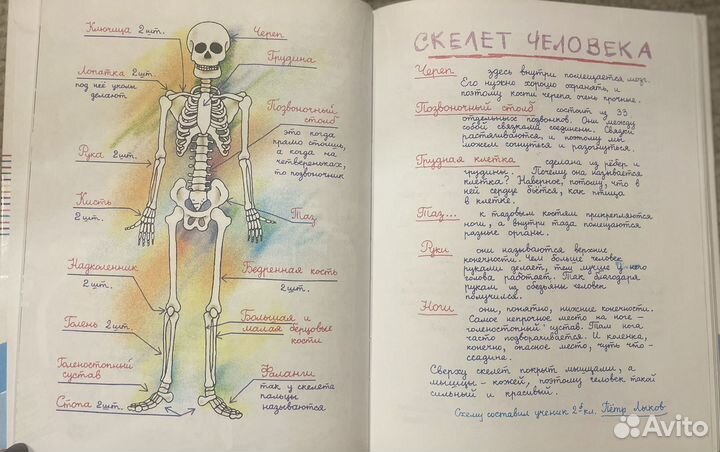 Ключица 2 шт.
Лопатка 2 шт.
под неё уколы
делают
Рука 2 шт.
Кисть
2 шт.
Надколенник
2 шт.
Голень 2 шт.
Голеностопный
сустав
Стопа 2 шт.
Череп
Грудина
Позвоночный
столб
это когда
прямо стоишь,
а когда на
четвереньках,
то позвоночник
Таз
Бедренная кость
2 шт.
Большая и
малая берцовые
кости
Фаланги
так у скелета
пальцы
называются
СКЕЛЕТ ЧЕЛОВЕКА
Череп здесь внутри помещается мозг.
Его нужно хорошо охранять, и
поэтому кости черепа очень прочные.
Позвоночный столб состоит из 33
отдельных позвонков. Они между
собой связками соединены. Связки
растягиваются, и поэтому мы
можем согнуться и разогнуться.
Грудная клетка сделана из рёбер и
грудины. Почему она называется
клетка? Наверное, потому, что в
ней сердце бьётся, как птица
в клетке.
Таз... к тазовым костям прикрепляются
ноги, а внутри таза помещаются
разные органы.
Руки они называются верхние
конечности. Чем больше человек
руками делает, тем лучше у него
голова работает. Так благодаря
рукам из обезьяны человек
получился.
Ноги они, понятно, нижние конечности.
Самое непрочное место на ноге –
голеностопный сустав. Там нога
часто подворачивается. И коленка,
конечно, опасное место, чуть что–
ссадина.
Сверху скелет покрыт мышцами, а
мышцы – кожей, поэтому человек такой
сильный и красивый.
Схему составил ученик 2 кл. Пётр Лыков
Avito